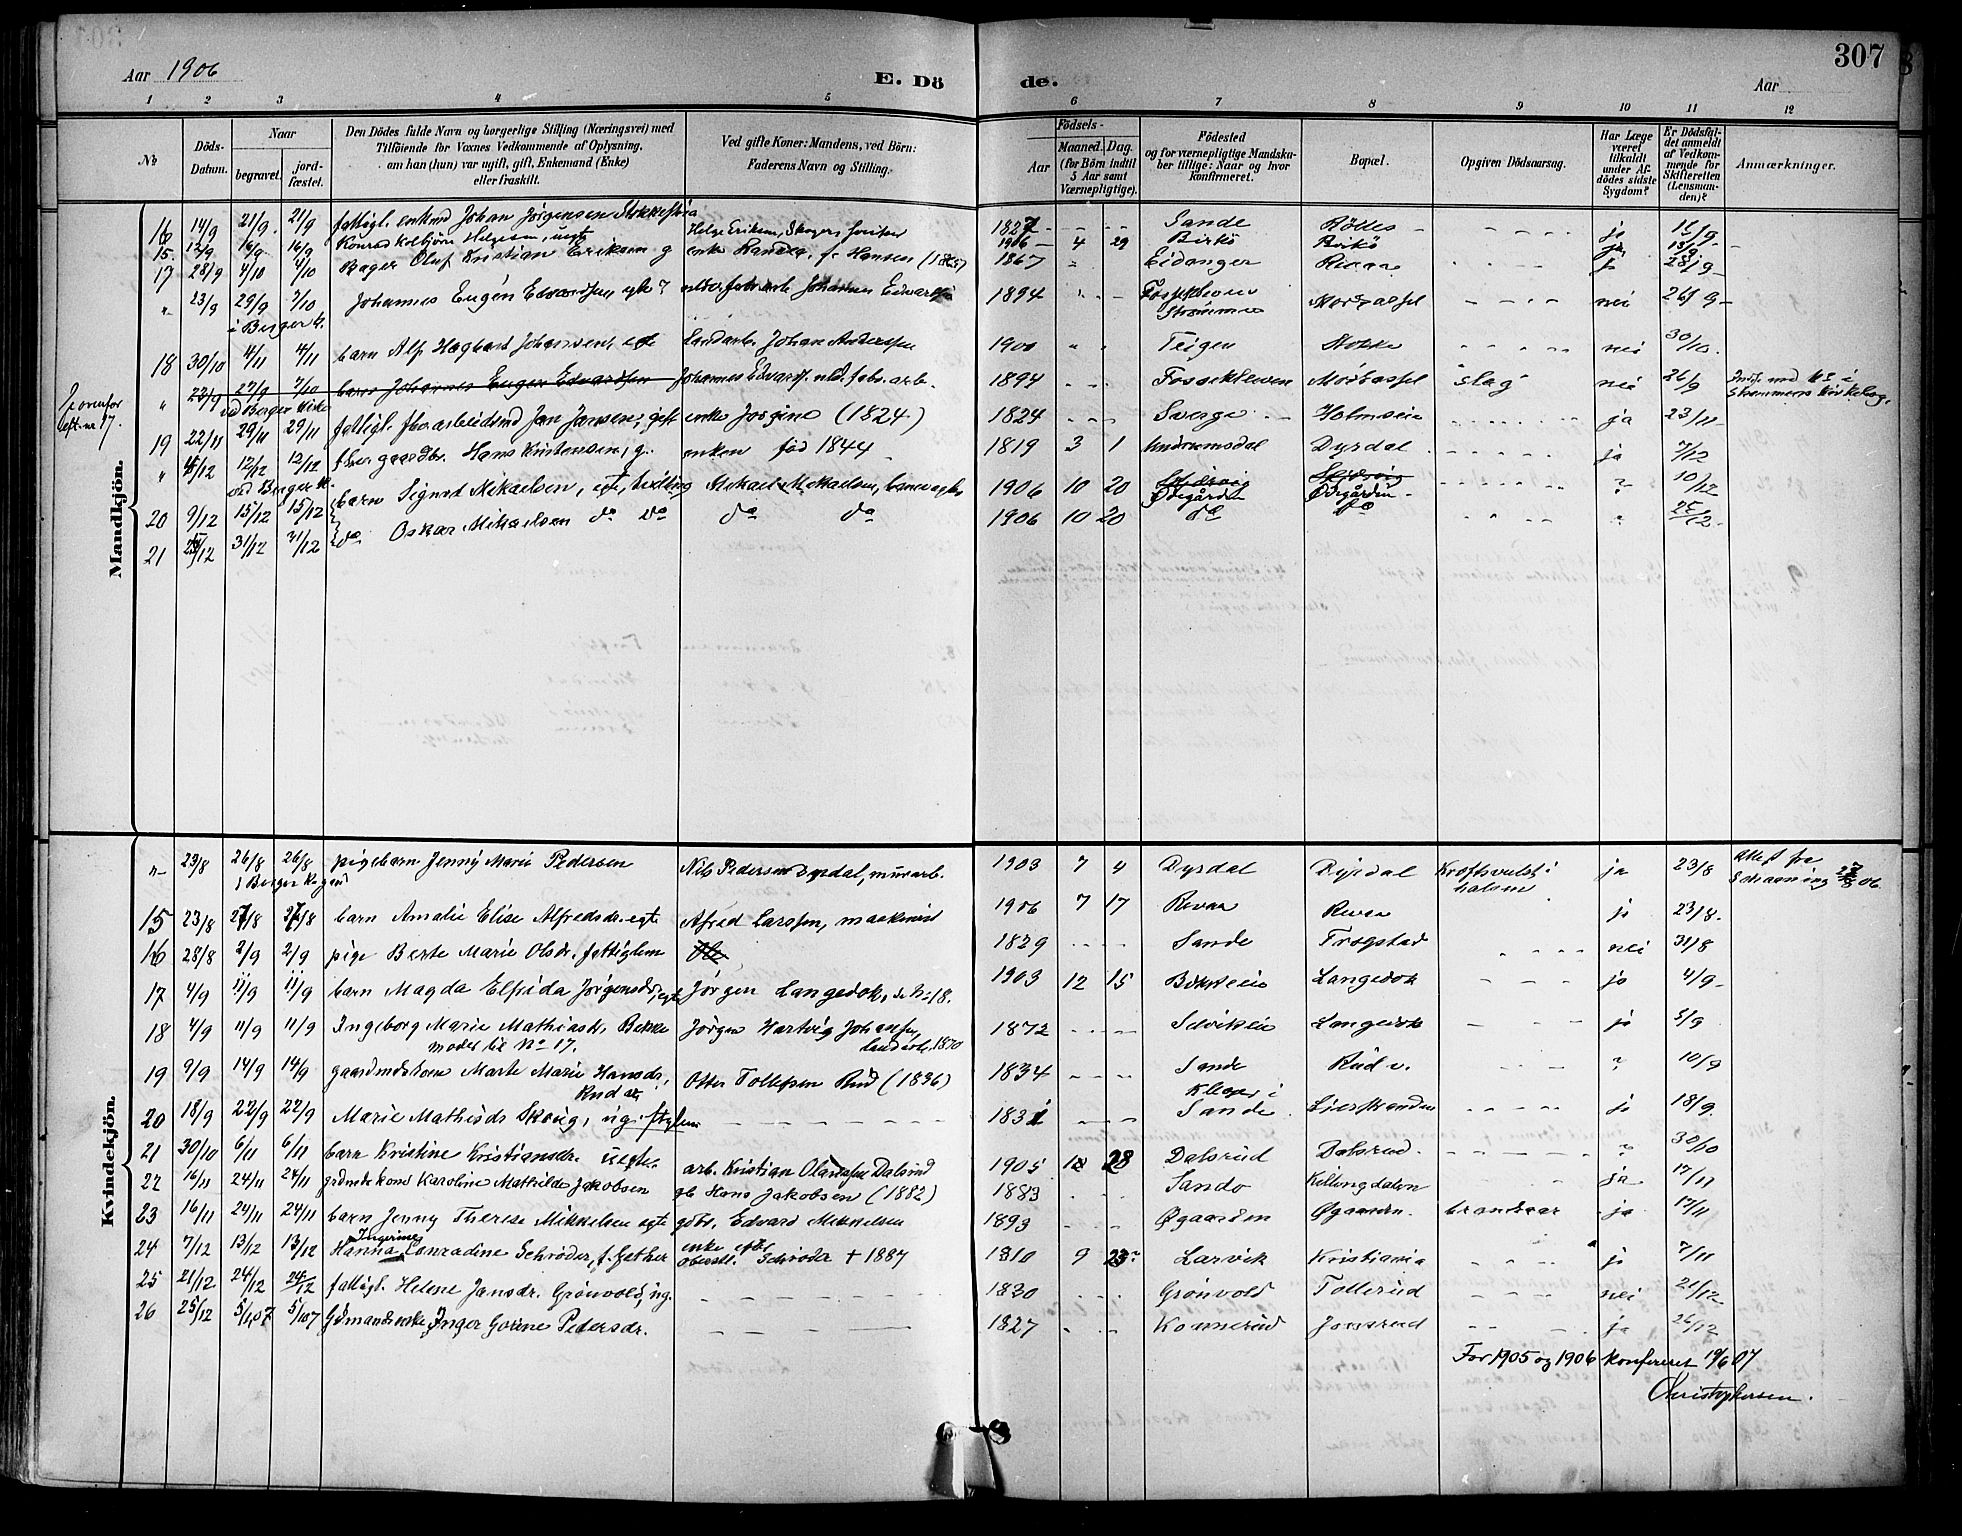 307
Aar 1906
E. Dö
de.
Aar
1 2 3 4 5 6 7 8 9 10 11 12
No
Döds-Datum.
Naar
begravet.
jord-fæstet.
Den Dödes fulde Navn og borgerlige Stilling (Næringsvei) med
Tilföiende for Voxnes Vedkommende af Oplysning.
om han (hun) var ugift, gift, Enkemand (Enke)
eller fraskilt.
Ved gifte Koner: Mandens, ved Börn:
Faderens Navn og Stilling.
Födsels-
Aar
Maaned. Dag.
(for Börn indtil
5 Aar samt
Værnepligtige).
Födested
og for værnepligtige Mandska-
ber tillige: Naar og hvor
konfirmeret.
Bopæl.
Opgiven Dödsaarsag.
Har Læge
været
tilkaldt
under Af-
dödes sidste
Sygdom?
Er Dödsfal-
det anmeldt
af Vedkom-
mende for
Skifteretten
(Lensman-
den)?
Anmærkninger.
Mandkjön.
16 14/9 21/9 21/9 fattigl. enkmd Johan Jörgensen 1827 Sande ja 15/9
15 12/9 16/9 16/9 Konrad Kolbjörn Helgesen, uegte Helge Eriksen, Skoger 1906 4 29 Birkö Birkö ja 13/9
17 28/9 4/10 4/10 Bager Oluf Kristian Eriksen g enke Randea f. Hansen 1867 Eidanger Revaa ja 28/9
" 23/9 29/9 7/10 Johannes Eugén Edvardsen, egte Johannes Edvardsen 1894 Fossekleven nei 26/9
i Berger k. Strömmen
18 30/10 4/11 4/11 barn Alf Hagbart Johansen, egte Landarb. Johan Anderssen 1900 Teigen Stokke nei 30/10
" 23/9 27/9 7/10 barn Johannes Eugen Edvardsen Johannes Edvards. uld.fabr.arb. 1894 Fossekleven slag nei 26/9
ved Berger kirke Strömmens kirkebog
Se ovenfor
eft. nr 17.
19 22/11 29/11 29/11 fattigl. Jan Jansen, gift enke Jorgine (1824) 1824 Sverge Holmseie ja 23/11
" 12/12 12/12 gaardbr. Hans Kristensen, g. enken föd 1844 1819 3 1 Undrumsdal Dyrdal ja 7/12
ved Berger k.
20 9/12 15/12 15/12 barn Sigurd Mikaelsen, egte, tvilling Mikael Mikkaelsen 1906 10 20 Ödegården Ödegården ? 10/12
21 31/12 31/12 do Oskar Mikaelsen do do do do 1906 10 20 do do
Kvindekjön.
"- 23/8 26/8 26/8 pigebarn Jenny Marie Pedersen Nils Pedersen Dyrdal, murarb. 1903 7 4 Dyrdal Dyrdal Krofthvulst i halsen ja 23/8 Attest fra
i Berger
15 23/8 27/8 27/8 barn Amalie Elise Alfredsdr. egte Alfred Larssen, maskinist 1906 7 17 Revaa Revaa ja 23/8
16 28/8 2/9 2/9 pige Berte Marie Olsdr. fattiglem 1829 Sande Trogstad nei 31/8
17 4/9 11/9 11/9 barn Magda Elfrida Jörgensdr, egte Jörgen Langedok, se No 18. 1903 12 15 Bekkeie Langedok ja 4/9
18 4/9 11/9 11/9 Ingeborg Marie Mathiasdr. Bekke Jörgen Hartvig Johansen, landarb. 1870 1872 Selvikeie Langedok ja 5/9
moder til No 17.
19 9/9 14/9 14/9 Marte Marie Hansdr. Otter Tollefsen Rud (1836) 1834 Sande Rud v. ? 10/9
20 18/9 22/9 22/9 Marie Mathisdr Skoug, ug. 1831 Sande Lierstranden ja 18/9
21 30/10 6/11 6/11 barn Kristine Kristiansdr. uegte arb. Kristian Dalsrud 1905 12 28 Dalsrud Dalsrud ? 30/10
22 16/11 24/11 24/11 Karoline Mathilde Jakobsen gb Hans Jakobsen (1882) 1883 Sande Killingdalen ja 17/11
23 16/11 24/11 24/11 barn Jenny Therese Mikkelsen egte gdbr. Edvard Mikkelsen 1893 Øgaarden Øgaarden brandsaar ja 17/11
24 7/12 13/12 13/12 Hanna Ingerine Conradine Schröder, f. Gether enke efter oberstl. Schröder + 1887 1810 9 23 Larvik Kristiania ja 7/11
25 21/12 24/12 24/12 fattigl. Helene Jansdr. Grönvold, ug. 1830 Grönvold Tollerud nei 21/12
26 25/12 5/1 07 5/1 07 Gdmandsenke Inger Gorine Pedersdr. 1827 Konnerud Jonsrud ja 26/12
For 1905 og 1906 konfereret 19/6 07
Christophersen.